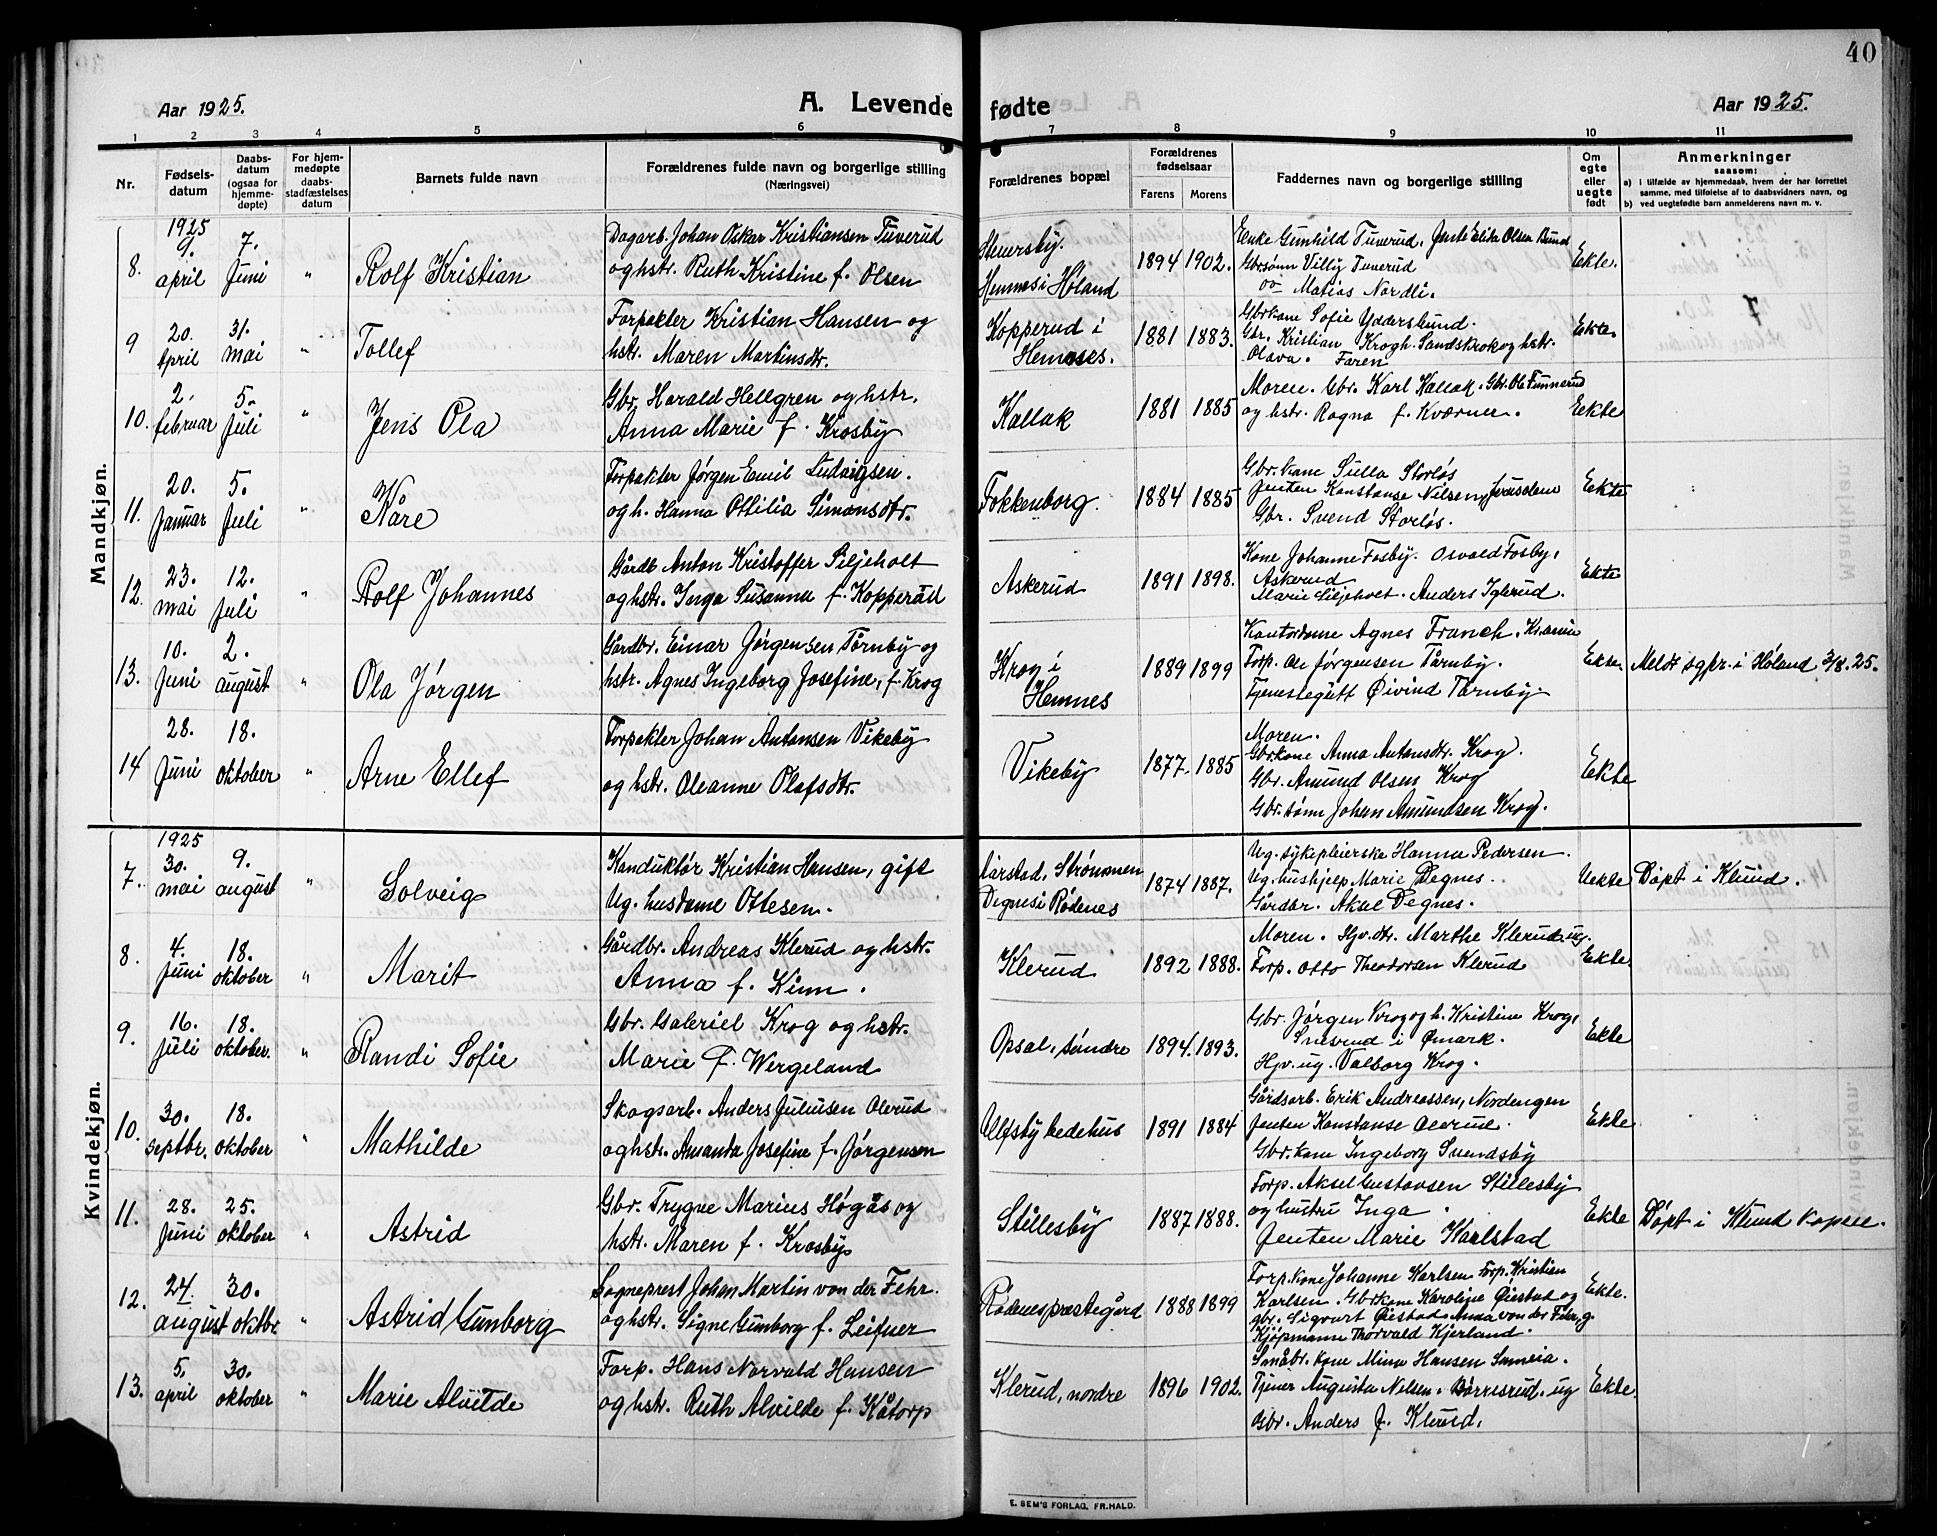 40
Aar 1925.
A. Levende fødte
Aar 1925.
1 2 3 4 5 6 7 8 9 10 11
Nr.
Fødsels-
datum
Daabs-
datum
(ogsaa for
hjemme-
døpte)
For hjem-
medøpte
daabs-
stadfæstelses
datum
Barnets fulde navn
Forældrenes fulde navn og borgerlige stilling
(Næringsvei)
Forældrenes bopæl
Forældrenes
fødselsaar
Farens Morens
Faddernes navn og borgerlige stilling
Om
egte
eller
uegte
født
Anmerkninger
saasom:
a) i tilfælde av hjemmedaab, hvem der har forrettet
samme, med tilføielse af to daabsvidners navn, og
b) ved uegtefødte barn anmelderens navn m. v.
Mandkjøn.
1925
8. 9. april 7. Juni " Rolf Kristian
Dagarb. Johan Oskar Kristiansen Tuverud
og hstr. Ruth Kristine f. Olsen
Hemnes i Høland
1894 1902.
Enke Gunhild Tuverud. Jente Elida Olsen
Gbrsønn Villy Tuverud
Matias Nordli.
Ekte.
9 20. April 31. mai " Tollef
Forpakter Kristian Hansen og
hstr. Maren Martinsdtr.
Kopperud i
Hemnes.
1881 1883.
Gbrkone Sofie
Gbr. Kristian Krogh. Sandskrok og hstr.
Olava. Faren
Ekte.
10. 2. februar 5. Juli " Jens Ola
Gbr. Harald Hellgren og hstr.
Anna Marie f. Krosby
Kallak
1881 1885
Moren. Gbr. Karl Kallak. Gbr. Ole
og hstr. Ragna f. Kværner.
Ekte
11. 20. Januar 5. Juli " Kåre
Forpakter Jørgen Emil Ludvigsen.
og h. Hanna Ottilia Simonsdtr.
Fokkenborg.
1884 1885
Gbr. kone Silla Storløs
Jenten Konstanse Nilsen, Jerusalem
Gbr. Svend Storløs.
Ekte
12. 23. mai 12. Juli " Rolf Johannes
Gårdb. Anton Kristoffer Siljeholt
og hstr. Inga Susanna f. Kopperud
Askerud
1891 1898.
Kone Johanne Fosby. Osvald Fosby.
Askerud
Marie Siljeholt. Anders Iglerud.
Ekte
13. 10. Juni 2. august " Ola Jørgen
Gårdbr. Einar Jørgensen Tårnby og
hstr. Agnes Ingeborg Josefine, f. Krog
Krog i
Hemnes
1889 1899
Kontordame Agnes Franch,
Forp. Ole Jørgensen Tårnby.
Tjenestegutt Øivind Tårnby
Ekte. Meldt sgpr. i Høland 3/8. 25.
14 28. Juni 18. oktober " Arne Ellef
Forpakter Johan Antonsen Vikeby
og hstr. Oleanne Olafsdtr.
Vikeby
1877. 1885
Moren.
Gbrkone Anna Antonsdtr. Krog.
Gbr. Amund Olsen Krog
Gbr. sønn Johan Amundsen Krog.
Ekte
Kvindekjøn.
1925
7. 30. mai 9. august " Solveig
Konduktør Kristian Hansen, gift
Ug. husdame Ottesen.
Aarstad, Strømmen
Degnes i Rødenes
1874 1887.
Ug. sykepleierske Hanna Pedersen.
Ug. hushjelp Marie Degnes.
Gårdbr. Aksel Degnes.
Uekte Døpt i Klund.
8. 4. Juni 18. oktober " Marit
Gårdbr. Andreas Klerud og hstr.
Anna f. Kinn.
Klerud
1892 1888.
Moren. Hjv. dtr. Marthe Klerud ug.
Forp. Otto Theodorsen Klerud
Ekte.
9. 16. Juli 18. oktober. " Randi Sofie
Gbr. Gabriel Krog og hstr.
Marie f. Wergeland
Opsal, søndre
1894. 1893.
Gbr. Jørgen Krog og h. Kristine Krog,
i Ømark.
Hjv. ug. Valborg Krog.
Ekte
10. 30. septbr. 18. oktober " Mathilde
Skogsarb. Anders Juliusen Olerud
og hstr. Amanda Josefine f. Jørgensen
Ulfsby bedehus
1891 1884
Gårdsarb. Erik Andreassen, Nordengen
Jenten Konstanse Olerud.
Gbr. kone Ingeborg Svendsby
Ekte
11. 28. Juni 25. oktober " Astrid
Gbr. Trygve Marius Høgås og
hstr. Maren f. Krosby
Stillesby
1887 1888.
Forp. Aksel Gustavsen Stillesby
og hustru Inga.
Jenten Marie Karlstad
Ekte Døpt i Klund kapell.
12. 24. august 30. oktbr. " Astrid Gunborg
Sogneprest Johan Martin von der Fehr.
og hstr. Signe Gunborg f. Leifner
Rødenes prestegård
1888 1899
Forp. kone Johanne Karlsen Forp. Kristian
Karlsen. Gbrkone Karoline Øiestad og
gbr. Sigvart Øiestad Anna von der Fehr, g.
Kjøpmann Thorvald Kjerland.
Ekte.
13. 5. april 30. oktober " Marie Alvilde
Forp. Hans Norvald Hansen
og hstr. Ruth Alvilde f. Kåtorp
Klerud, nordre
1896 1902.
Småbr. kone Mina Hansen
Tjener Augusta Nilsen. Børresrud. ug
Gbr. Anders f. Klerud.
Ekte.
E. SEM'S FORLAG, FR.HALD.